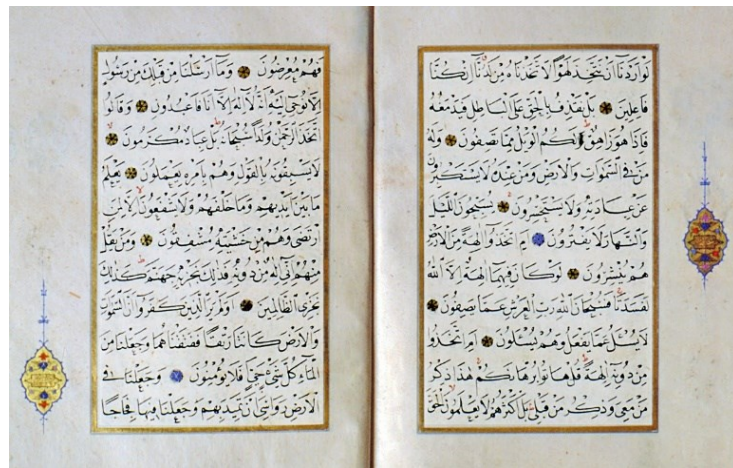 لَوْ اَرَدْنَٓا اَنْ نَتَّخِذَ لَهْوًا لَاتَّخَذْنَاهُ مِنْ لَدُنَّٓا اِنْ كُنَّا
فَاعِلِينَ بَلْ نَقْذِفُ بِالْحَقِّ عَلَى الْبَاطِلِ فَيَدْمَغُهُ
فَاِذَا هُوَ زَاهِقٌ وَلَكُمُ الْوَيْلُ مِمَّا تَصِفُونَ وَلَهُ
مَنْ فِى السَّمٰوَاتِ وَالْاَرْضِ وَمَنْ عِنْدَهُ لَا يَسْتَكْبِرُونَ
عَنْ عِبَادَتِهِ وَلَا يَسْتَحْسِرُونَ يُسَبِّحُونَ الَّيْلَ
وَالنَّهَارَ لَا يَفْتُرُونَ اَمِ اتَّخَذُٓوا اٰلِهَةً مِنَ الْاَرْضِ
هُمْ يُنْشِرُونَ لَوْ كَانَ فِيهِمَٓا اٰلِهَةٌ اِلَّا اللّٰهُ
لَفَسَدَتَا فَسُبْحَانَ اللّٰهِ رَبِّ الْعَرْشِ عَمَّا يَصِفُونَ
لَا يُسْئَلُ عَمَّا يَفْعَلُ وَهُمْ يُسْئَلُونَ اَمِ اتَّخَذُوا
مِنْ دُونِهِ اٰلِهَةً قُلْ هَاتُوا بُرْهَانَكُمْ هٰذَا ذِكْرُ
مَنْ مَعِىَ وَذِكْرُ مَنْ قَبْلِى بَلْ اَكْثَرُهُمْ لَا يَعْلَمُونَ الْحَقَّ
فَهُمْ مُعْرِضُونَ وَمَٓا اَرْسَلْنَا مِنْ قَبْلِكَ مِنْ رَسُولٍ
اِلَّا نُوحِٓى اِلَيْهِ اَنَّهُ لَٓا اِلٰهَ اِلَّٓا اَنَا فَاعْبُدُونِ وَقَالُوا
اتَّخَذَ الرَّحْمٰنُ وَلَدًا سُبْحَانَهُ بَلْ عِبَادٌ مُكْرَمُونَ
لَا يَسْبِقُونَهُ بِالْقَوْلِ وَهُمْ بِاَمْرِهِ يَعْمَلُونَ يَعْلَمُ
مَا بَيْنَ اَيْدِيهِمْ وَمَا خَلْفَهُمْ وَلَا يَشْفَعُونَ اِلَّا لِمَنِ
ارْتَضٰى وَهُمْ مِنْ خَشْيَتِهِ مُشْفِقُونَ وَمَنْ يَقُلْ
مِنْهُمْ اِنِّٓى اِلٰهٌ مِنْ دُونِهِ فَذٰلِكَ نَجْزِيهِ جَهَنَّمَ كَذٰلِكَ
نَجْزِى الظَّالِمِينَ اَوَلَمْ يَرَ الَّذِينَ كَفَرُٓوا اَنَّ السَّمٰوَاتِ
وَالْاَرْضَ كَانَتَا رَتْقًا فَفَتَقْنَاهُمَا وَجَعَلْنَا مِنَ
الْمَٓاءِ كُلَّ شَىْءٍ حَىٍّ اَفَلَا يُؤْمِنُونَ وَجَعَلْنَا فِى
الْاَرْضِ رَوَاسِىَ اَنْ تَمِيدَ بِهِمْ وَجَعَلْنَا فِيهَا فِجَاجًا